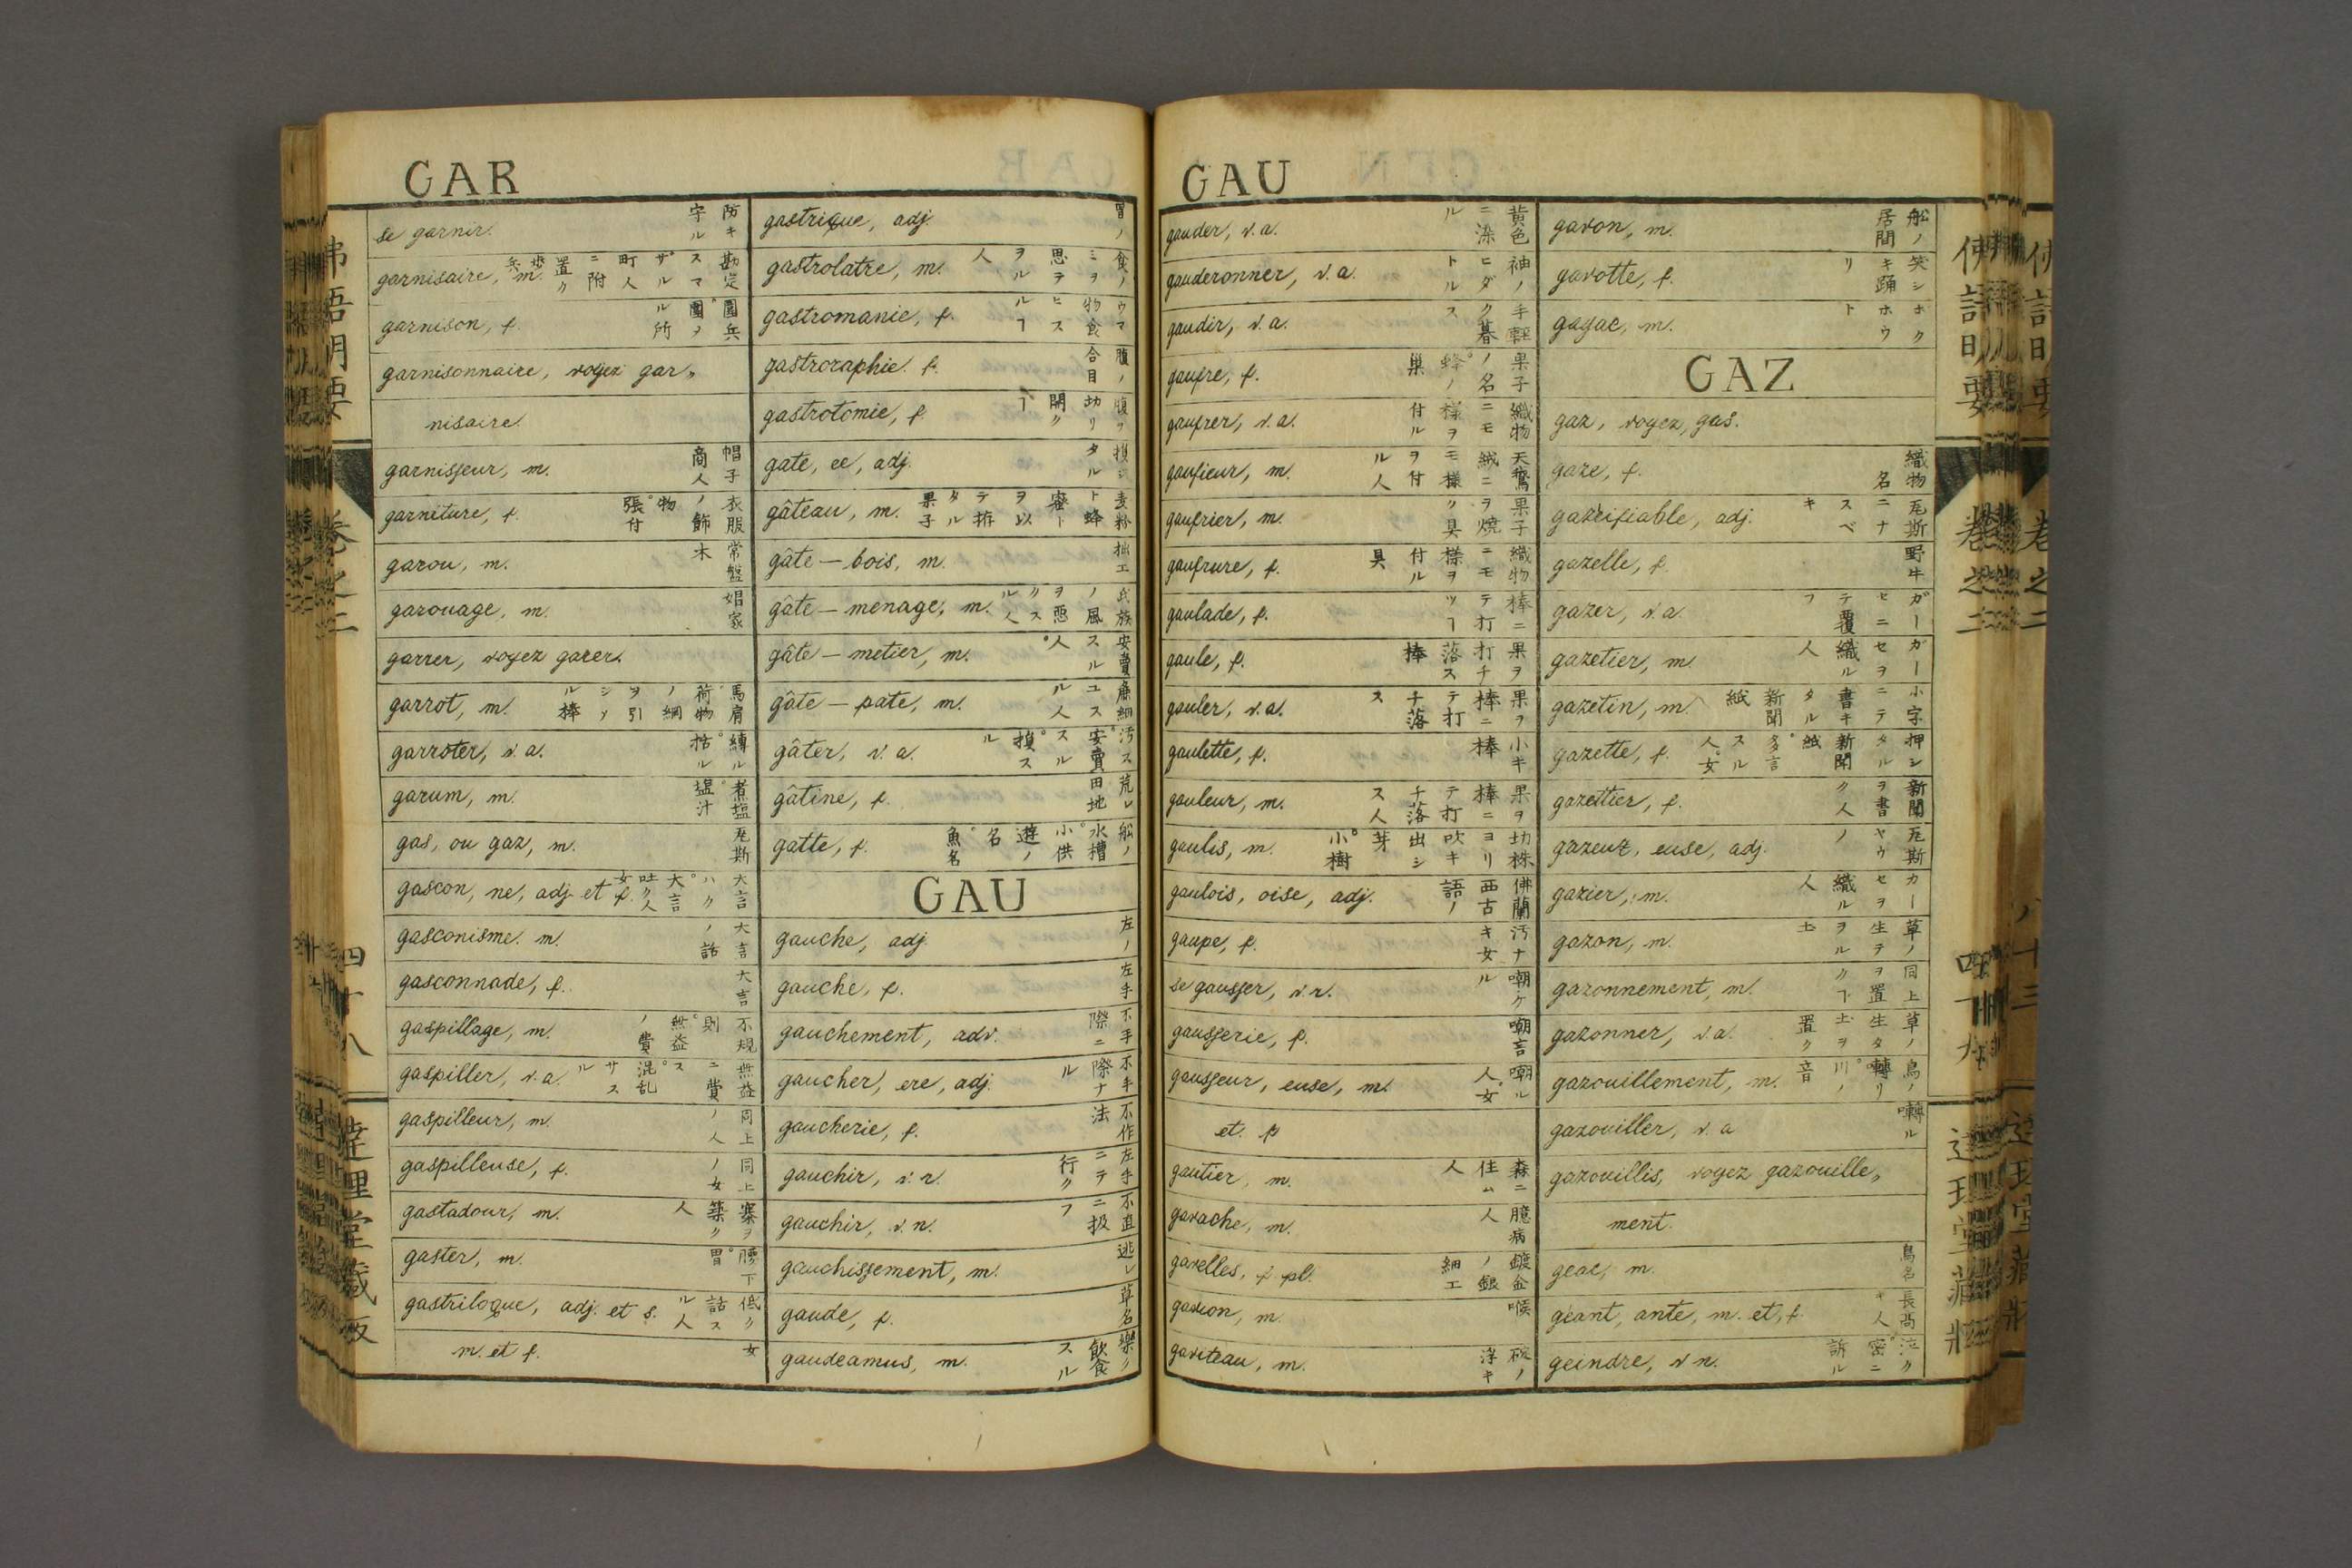 GAR
se garnir. 防キ守ル
garnisaire, m. 勘定スマザル町人ニ附置ク歩兵
garnison, f. 圍兵。圍ヲル所
garnisonnaire, voyez gar„
nisaire.
garnisseur, m. 帽子商人
garniture, f. 衣服ノ飾物。張付
garou, m. 常盤木
garouage, m. 娼家
garrer, voyez garer.
garrot, m. 馬肩。荷物ノ綱ヲ引シメル棒
garroter, v. a. 縛ル。括ル
garum, m. 煮塩。塩汁
gas, ou gaz, m. 瓦斯
gascon, ne, adj. et f. 大言ハク。大言吐ク人。女
gasconisme. m. 大言ノ話
gasconnade, f. 大言
gaspillage, m. 不規則。無益ノ費
gaspiller, v. a. 無益ニ費ス。混乱サスル
gaspilleur, m. 同上ノ人
gaspilleuse, f. 同上ノ女
gastadour, m. 寨ヲ築ク人
gaster, m. 腰下。胃
gastriloque, adj. et s. 低ク話スル人
m. et f. 女
gastrique, adj. 胃ノ
gastrolatre, m. 食ノミヲ思ヲヲル人
gastromanie, f. ウマ物食ヒスルヿ
gastroraphie. f. 腹ノ合目
gastrotomie, f. 腹ヲ切リ開クヿ
gate, ee, adj. 損シタル
gâteau, m. 麦粉ト蜂蜜トヲ以テ拵タル果子
gâte—bois, m. 拙工
gâte—menage, m. 氏族ノ風ヲ悪クスル人
gâte—metier, m. 安賣スル人。
gâte—pate, m. 麁細ユスル人
gâter, v. a. 汚ス。安賣スル。損スル
gâtine, f. 荒レ田地
gatte, f. 舩ノ水槽。小供遊ノ名。魚名
GAU
gauche, adj. 左ノ
gauche, f. 左手
gauchement, adv. 不手際ニ
gaucher, ere, adj. 不手際ナル
gaucherie, f. 不作法
gauchir, v. r. 左手ニテ行ク
gauchir, v. n. 不直ニ扱フ
gauchissement, m. 逃レ
gaude, f. 草名
gaudeamus, m. 樂ク飲食スル
GAU
gauder, v. a. 黄色ニ染ル
gauderonner, v. a. 袖ノヒダトル
gaudir, v. a. 手軽ク暮ス
gaufre, f. 果子ノ名。蜂ノ巣
gaufrer, v. a. 織物ニモ様ヲ付ル
gaufieur, m. 天鵞絨ニモ様ヲ付ル人
gaufrier, m. 果子ヲ焼ク具
gaufrure, f. 織物ニモ様ヲ付ル具
gaulade, f. 棒ニテ打ツヿ
gaule, f. 果ヲ打チ落ス棒
gauler, v. a. 果ヲ棒ニテ打チ落ス
gaulette, f. 小キ棒
gauleur, m. 果ヲ棒ニテ打チ落ス人
gaulis, m. 切株ヨリ吹キ出シ芽。小樹
gaulois, oise, adj. 佛蘭西古語ノ
gaupe, f. 汚ナキ女
se gausser, v. r. 嘲ケル
gausserie, f. 嘲言
gausseur, euse, m. 嘲ル人。女
et. f
gautier, m. 森ニ住ム人
gavache, m. 臆病人
gavelles, f. pl. 鍍金ノ銀細工
gavion, m. 喉
gaviteau, m. 碇ノ浮キ
gavon, m. 舩ノ居間
gavotte, f. 笑シキ踊リ
gayac, m. ホクホウト
GAZ
gaz, voyez, gas.
gaze, f. 織物名
gazeifiable, adj. 瓦斯ニナスベキ
gazelle, f. 野牛
gazer, v. a. ガーセニテ覆フ
gazetier, m. ガーセヲ織ル人
gazetin, m. 小字ニテ書キタル新聞紙
gazette, f. 押シタル新聞紙。多言スル人。女
gazettier, f. 新聞ヲ書ク人
gazeux, euse, adj. 瓦斯ヤウノ
gazier, m. カーセヲ織ル人
gazon, m. 草ノ生テヲル土
gazonnement, m. 同上ヲ置クヿ
gazonner, v. a. 草ノ生タ土ヲ置ク
gazouillement, m. 鳥ノ囀リ。川ノ音
gazouiller, v. a 囀ル
gazouillis, voyez gazouille„
ment.
geac, m. 鳥名
géant, ante, m. et, f. 長高キ人
geindre, v n. 泣ク。密ニ訴ル